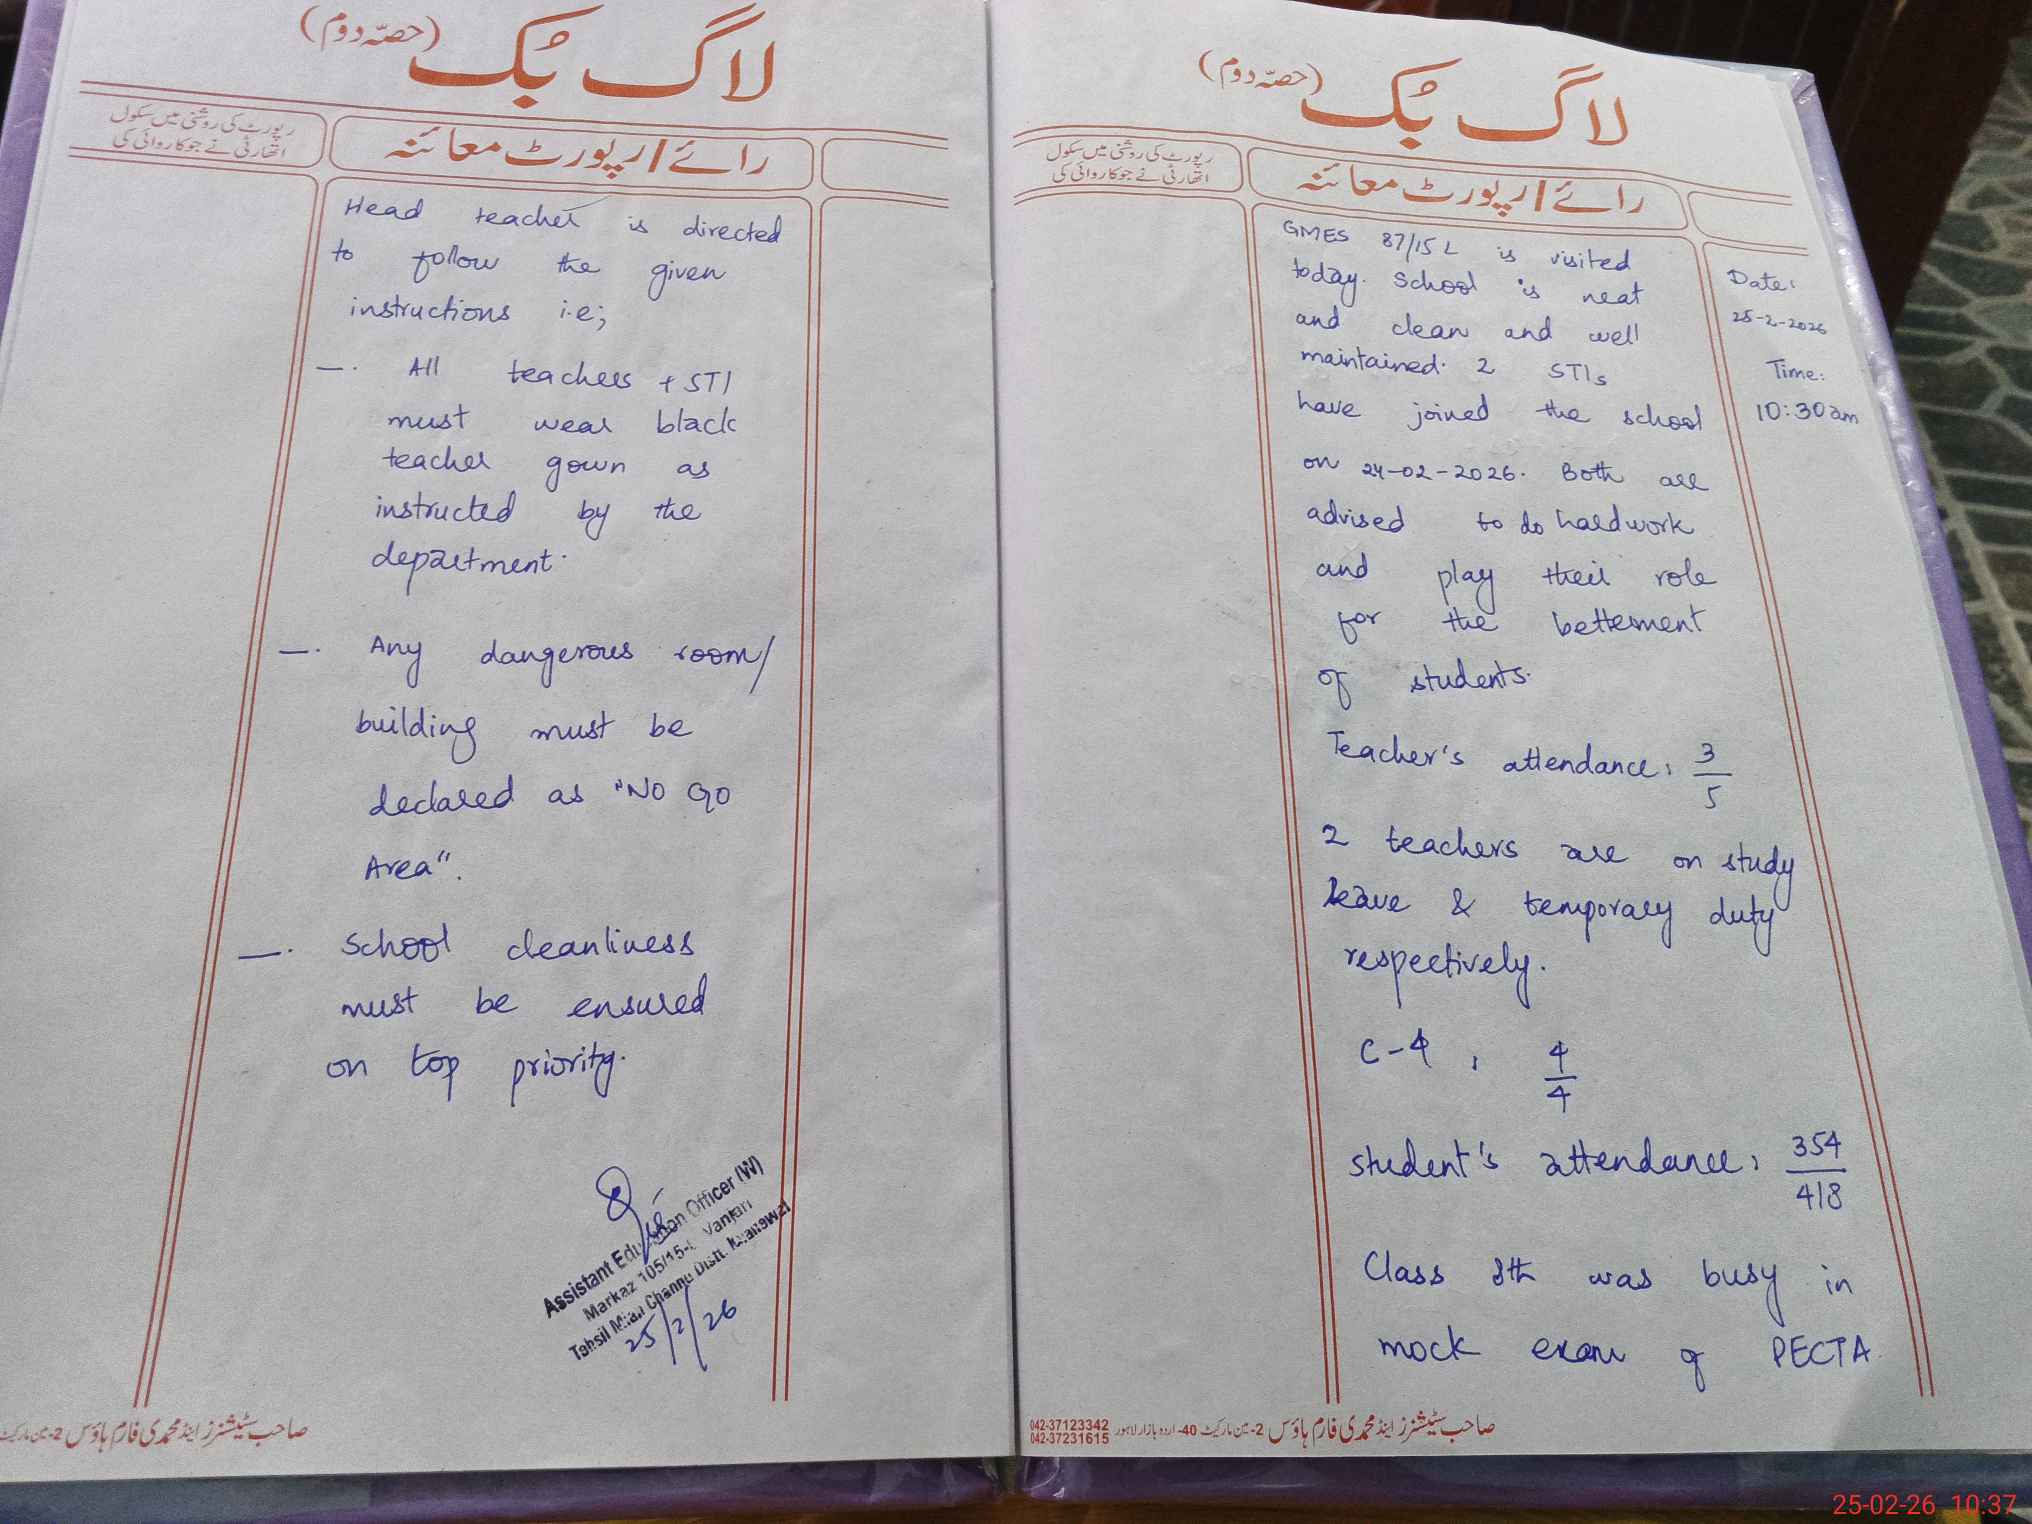 لاگ بُک (حصّہ دوم)
رائے / رپورٹ معائنہ
رپورٹ کی روشنی میں سکول
اتھارٹی نے جو کاروائی کی
Date:
25-2-2026
Time:
10:30am
GMES 87/15 L is visited
today. School is neat
and clean and well
maintained. 2 STIs
have joined the school
on 24-02-2026. Both are
advised to do hardwork
and play their role
for the betterment
of students.
Teacher's attendance: 3/5
2 teachers are on study
leave & temporary duty
respectively.
C-4 : 4/4
student's attendance: 354/418
Class 8th was busy in
mock exam of PECTA
صاحب سٹیشنرز اینڈ محمدی فارم ہاؤس 2-مین مارکیٹ 40-اردو بازار لاہور
042-37123342
042-37231615
لاگ بُک (حصّہ دوم)
رائے / رپورٹ معائنہ
رپورٹ کی روشنی میں سکول
اتھارٹی نے جو کاروائی کی
Head teacher is directed
to follow the given
instructions i.e;
—. All teachers + STI
must wear black
teacher gown as
instructed by the
department.
—. Any dangerous room/
building must be
declared as "NO GO
Area".
—. School cleanliness
must be ensured
on top priority.
Assistant Education Officer (W)
Markaz 105/15-L
Tehsil Mian Channu Distt. Khanewal
25/2/26
صاحب سٹیشنرز اینڈ محمدی فارم ہاؤس 2-مین مارکیٹ
25-02-26 10:37